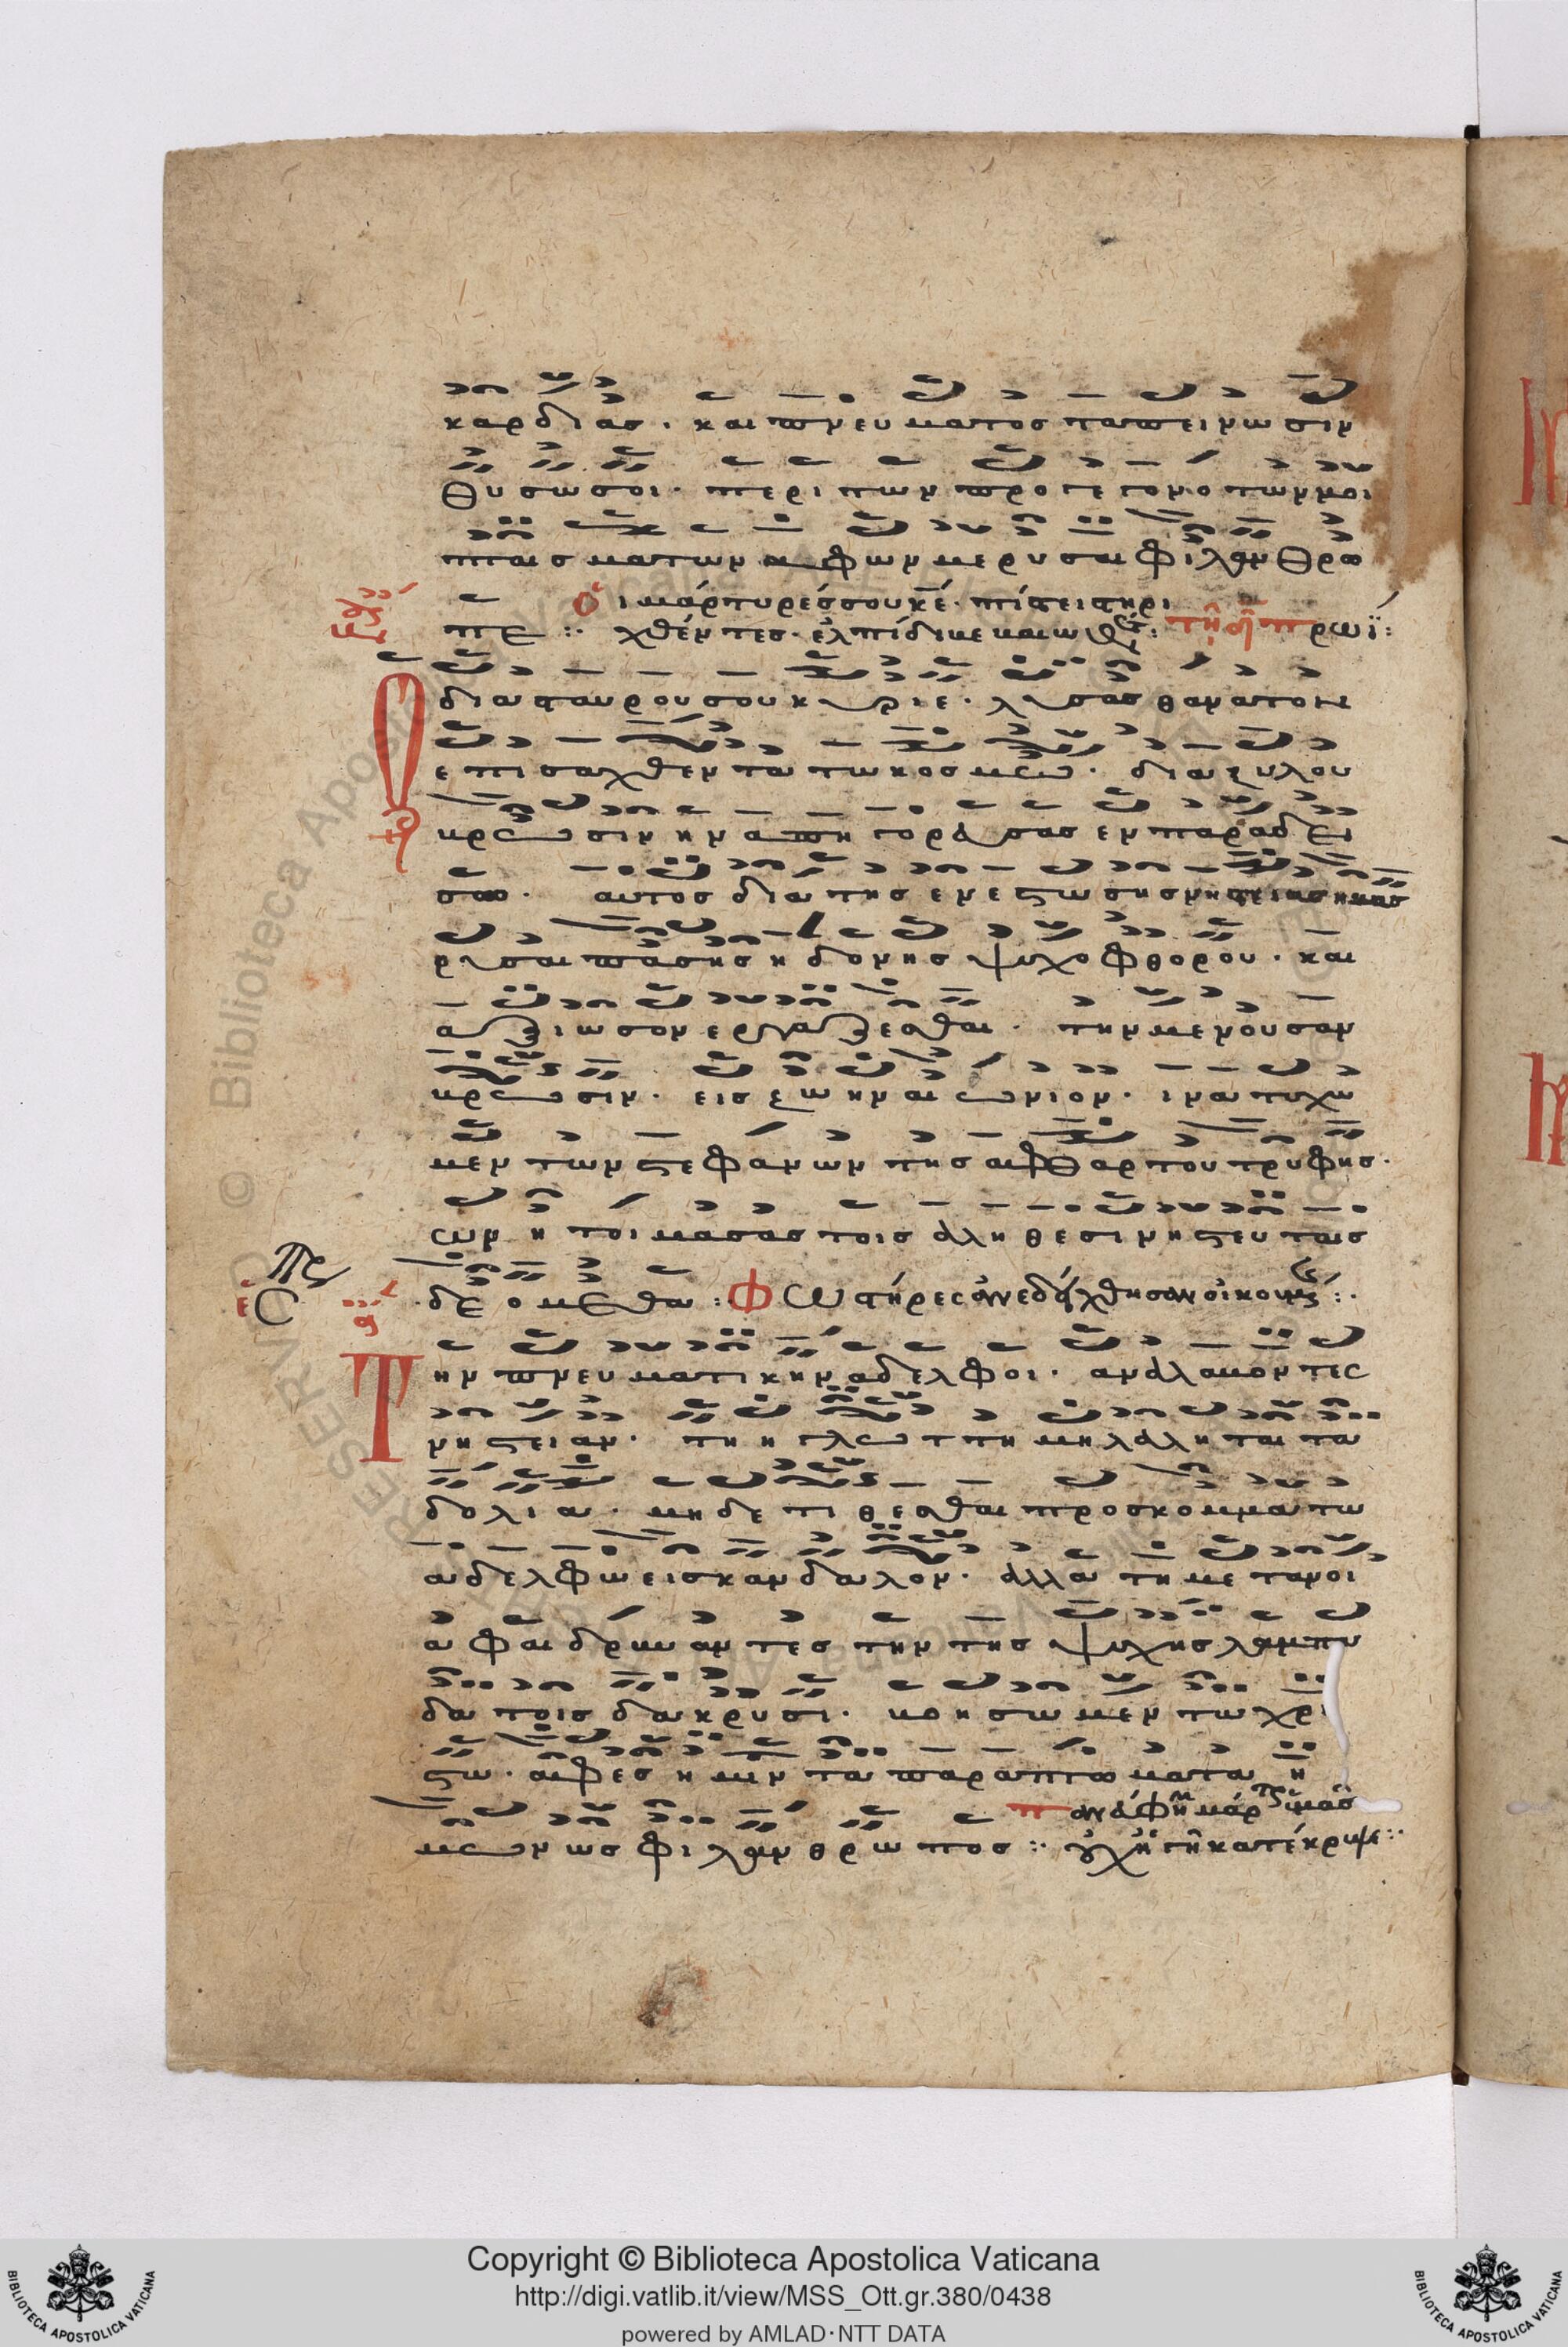 καρδιασ. και πνευματοσ ταπεινωσιν
θυσω σοι. περι των προ τε γονοτων μοι
πταισματων κ φων με ρυσαι φιλανθρω
Οἱ μάρτυρέσ σου κε. πίστει στηρι
πε :· χθέντεσ. ἐλπίδι
τῆ πρωΐ:
δια σταυρου σου κυριε. λυσασ θανατον
επισαχθεντα τω κοσμω. δια ξυλου
κρωσιν ην απηγορευσασ εν παραδει
σω. αυτοσ δια τησ ενεστωσησ νηστειασ ημασ
ρυσαι πασησ ηδονησ ψυχοφθορου. και
αξιωσον εργαζεσθαι. την μενουσαν
κρωσιν. εισ ζωην αιωνιον. ινα τυχω
μεν των στεφανων τησ αφθαρτου τρυφησ.
ων ητοιμασασ τοισ αληθεσι νηστευταισ
δεομεθα :· Φωστήρεσ ἀνεδείχθησαν οἰκουμ :·
Την πνευματικην αδελφοι. αναλαβοντεσ
νηστειαν. τη γλωττη μη λαλειται τα
δολια. μηδε τιθεσθαι προσκομμα τω
αδελφω εισ κανδαλον. αλλα τη μετανοι
α φαιδρυναντεσ την τησ ψυχησ λαμπα
δα τοισ δακρυσι. βοησωμεν τω χρι
στω. αφεσ ημιν τα παραπτωματα η
μων ωσ φιλανθρωποσ :·
Copyright © Biblioteca Apostolica Vaticana
http://digi.vatlib.it/view/MSS_Ott.gr.380/0438
powered by AMLAD·NTT DATA
BIBLIOTECA APOSTOLICA VATICANA
BIBLIOTECA APOSTOLICA VATICANA